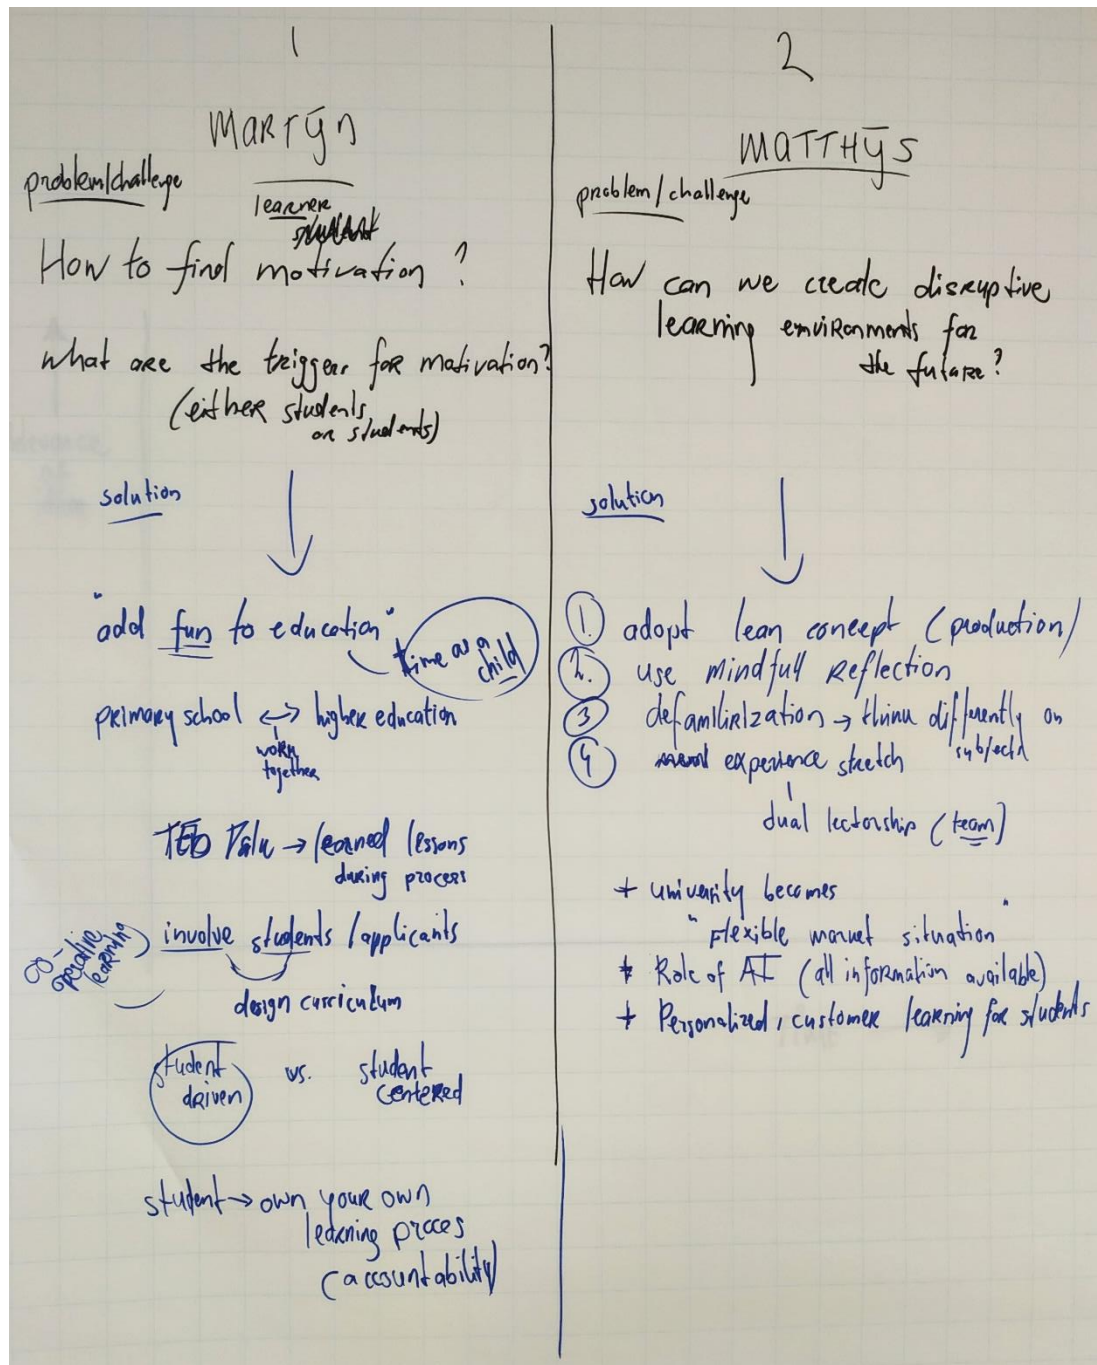 1
MARTȲN
problem/challenge
learner
How to find motivation?
what are the trigger for motivation?
(either students
or students)
solution
"add fun to education"
time as a
child
primary school <-> higher education
work
together
TED Talk → learned lessons
during process
co-
operative
learning
involve students / applicants
design curriculum
student
driven
vs.
student
centered
student → own your own
learning proces
(accountability)
2
MATTHȲS
problem / challenge
How can we create disruptive
learning environments for
the future?
solution
1. adopt lean concept (production)
2. use mindfull reflection
3 defamilirization → think differently on
subjects
4 experience stretch
dual lectorship (team)
+ university becomes
"Flexible market situation"
+ Role of AI (all information available)
+ Personalized, customer learning for students